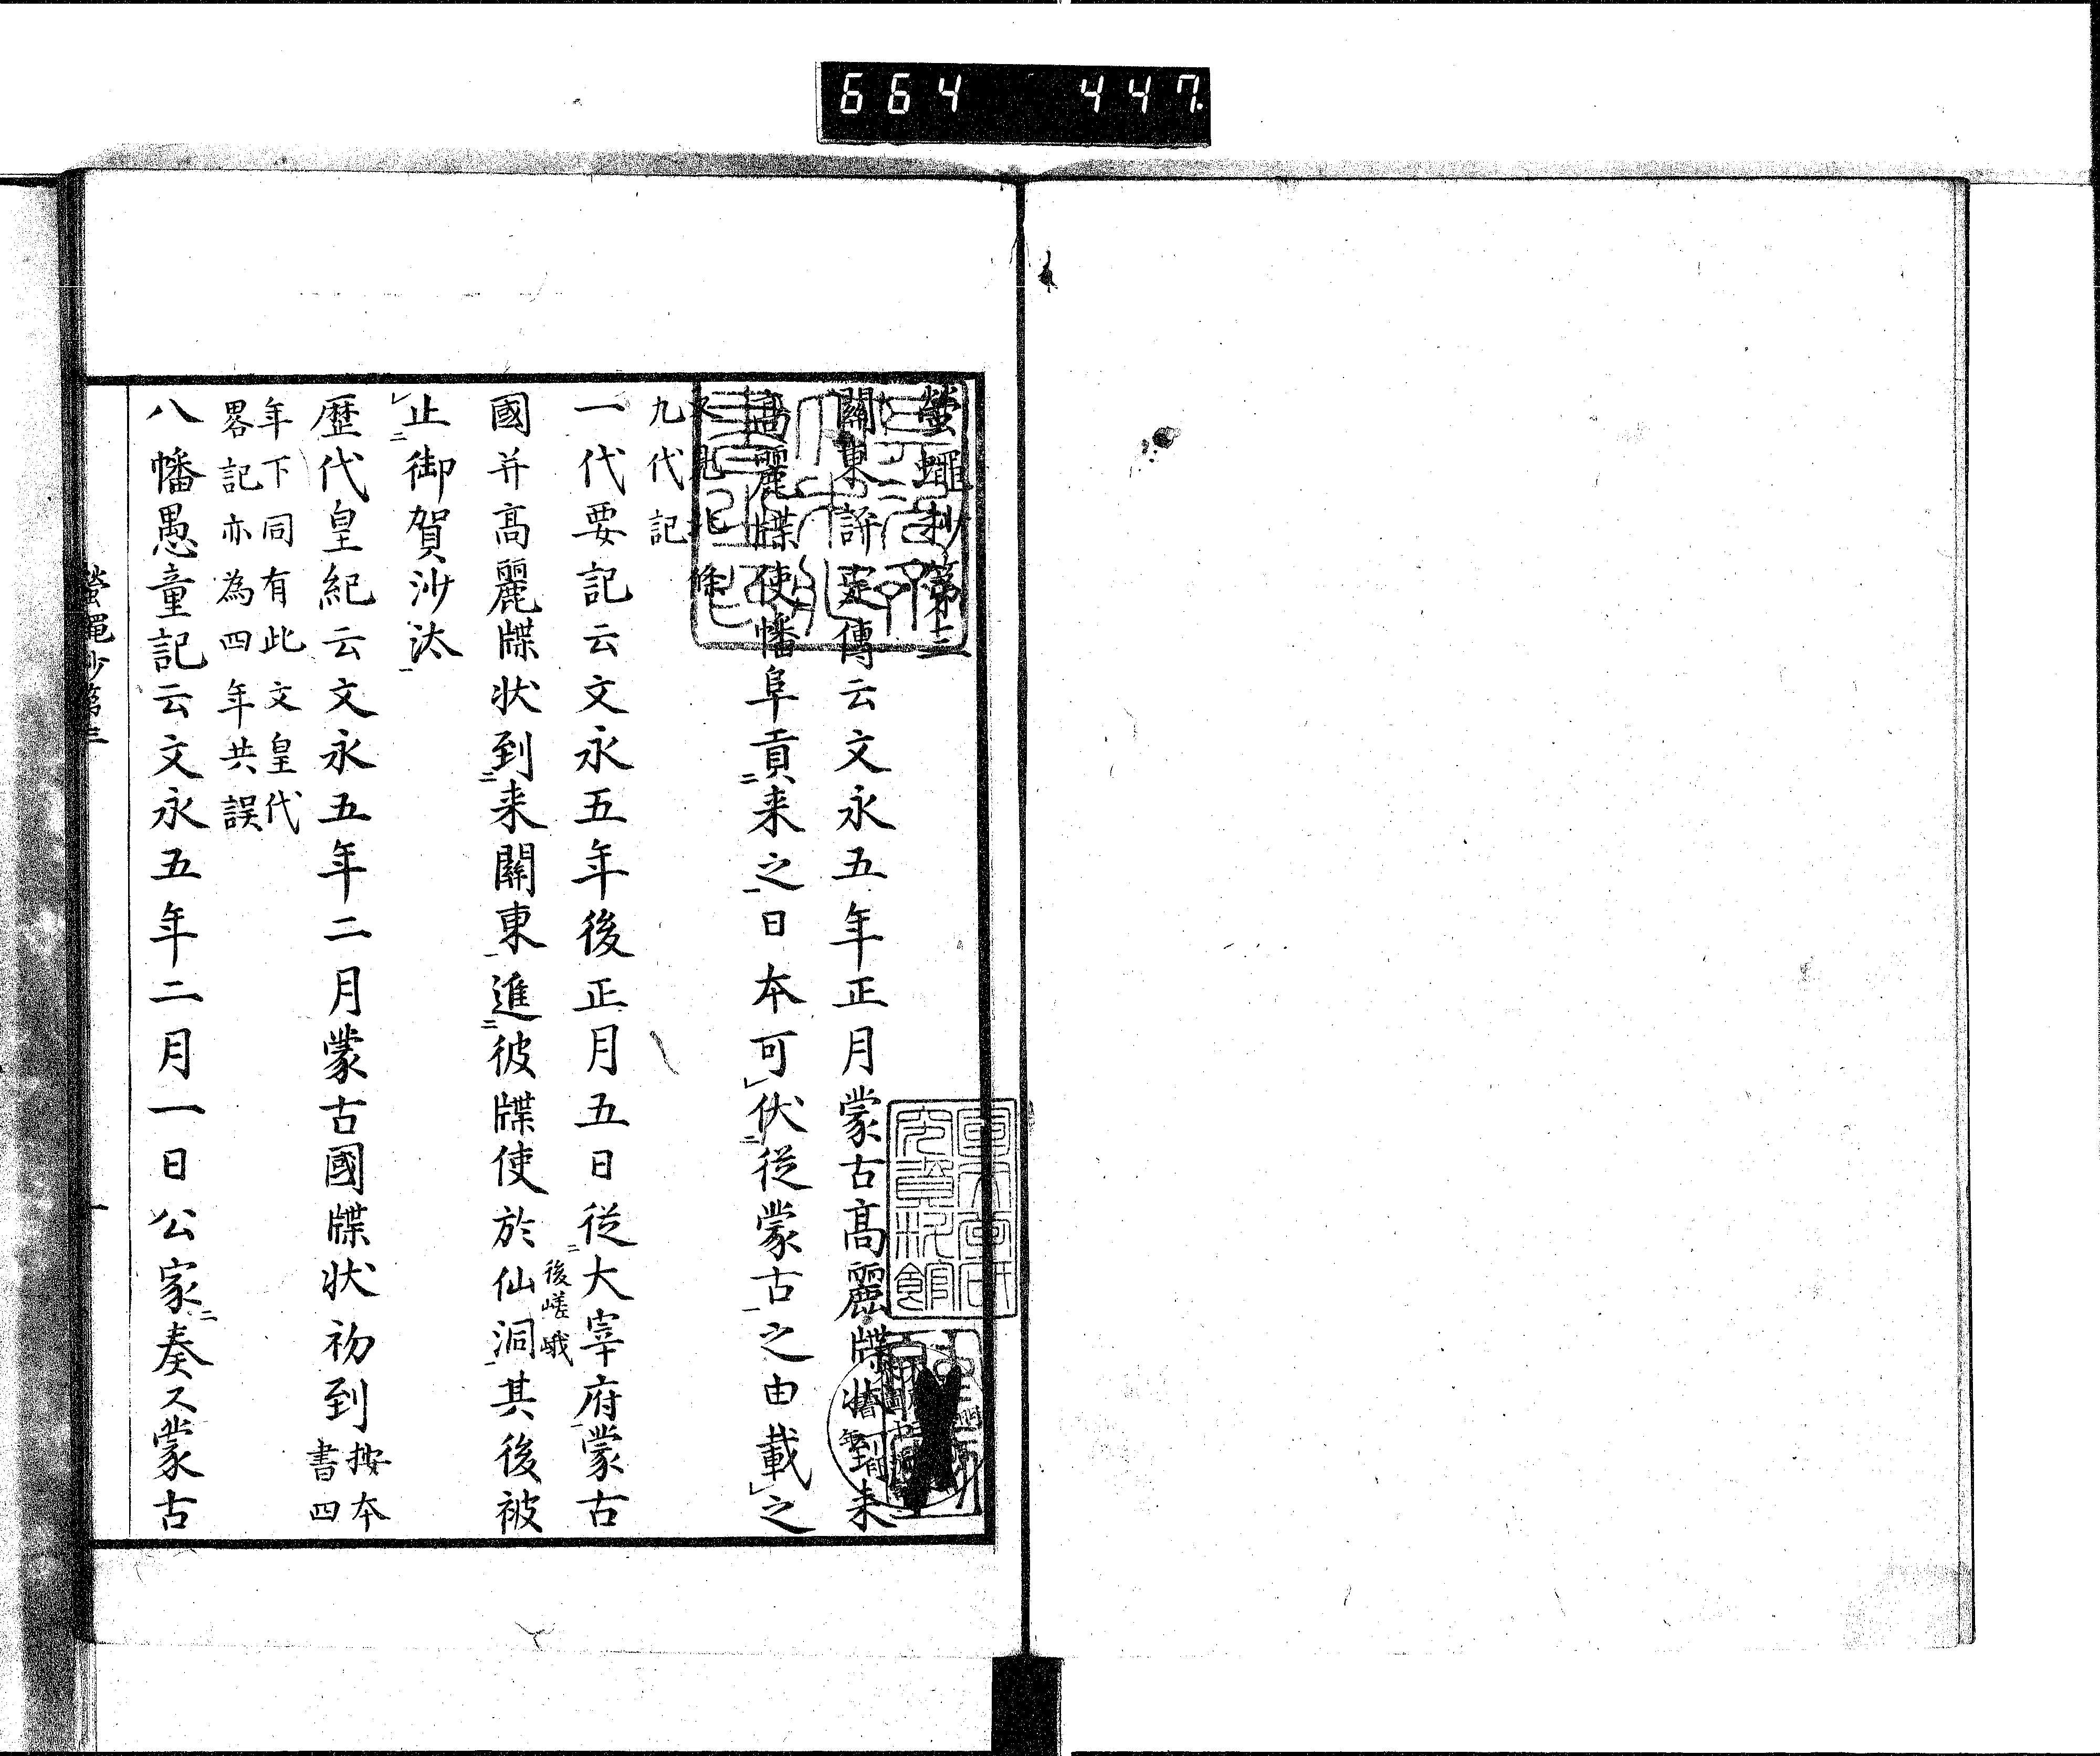 664 447.
螢蠅抄第三
關東評定傳云文永五年正月蒙古高麗牒狀到来
高麗牒使幡阜貢来之日本可伏從蒙古之由載之
九代記
一代要記云文永五年後正月五日從大宰府蒙古
國并高麗牒状到来關東進彼牒使於仙洞其後被
後嵯峨
止御賀沙汰
歴代皇紀云文永五年二月蒙古國牒状初到
按本
書四
年下同有此文皇代
畧記亦為四年共誤
八幡愚童記云文永五年二月一日公家奏ス蒙古
螢蠅抄第三
一